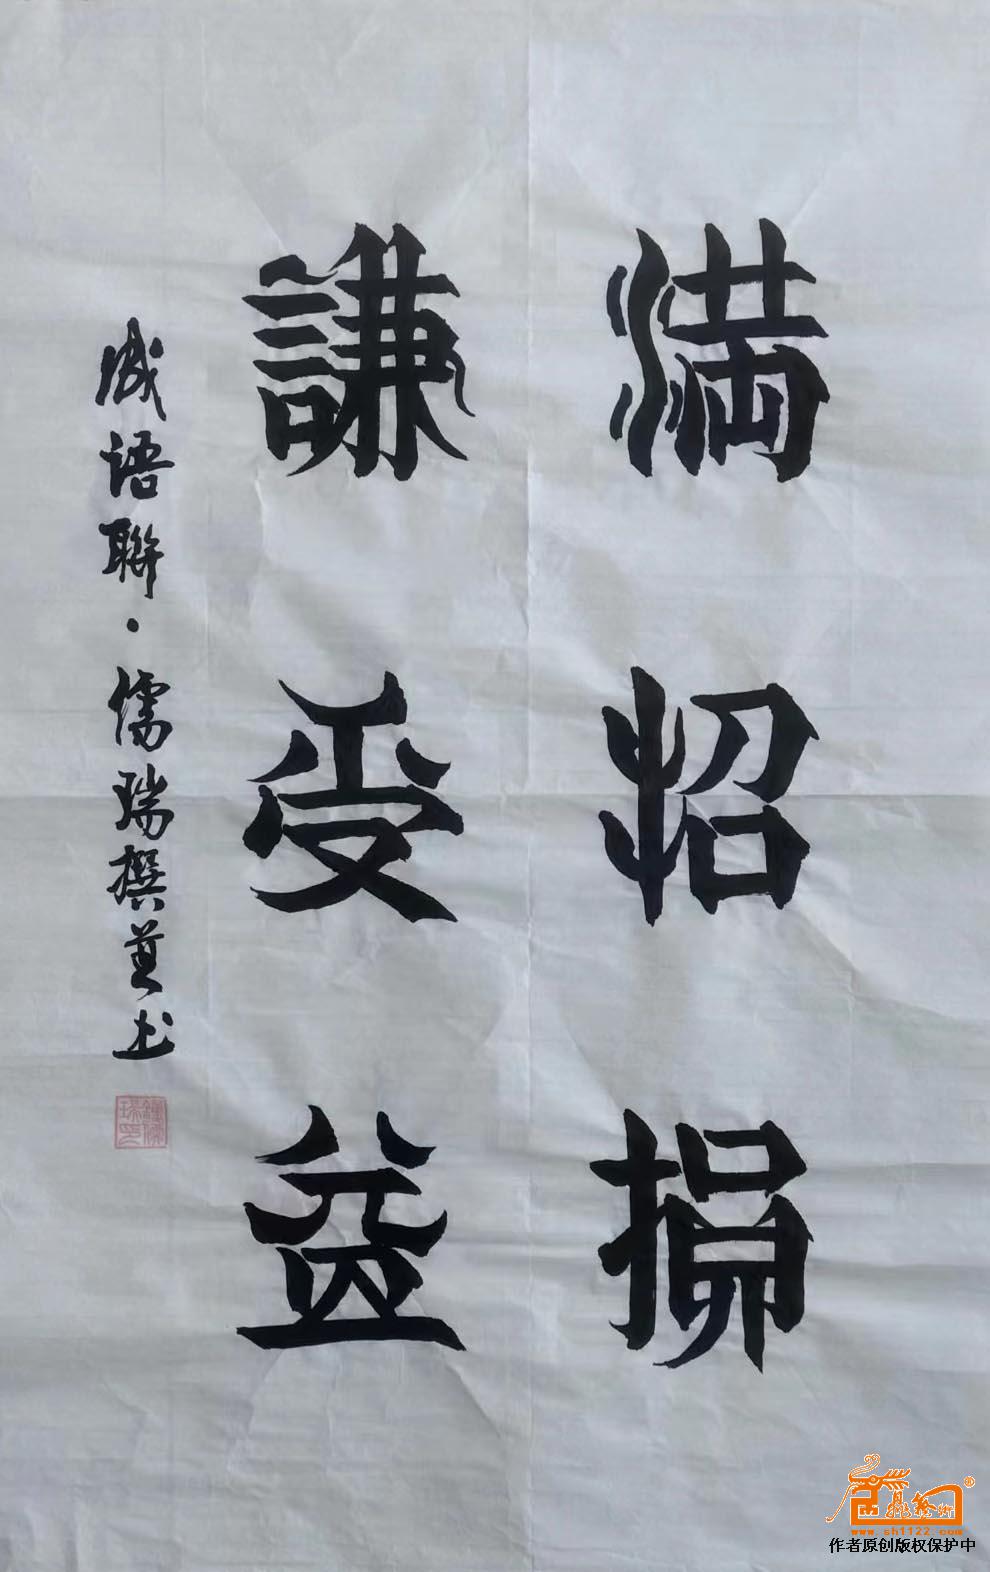 满招损
謙受益
成语聯·儒瑞撰并书
鐘儒瑞印
www.sh1122.com
作者原创版权保护中